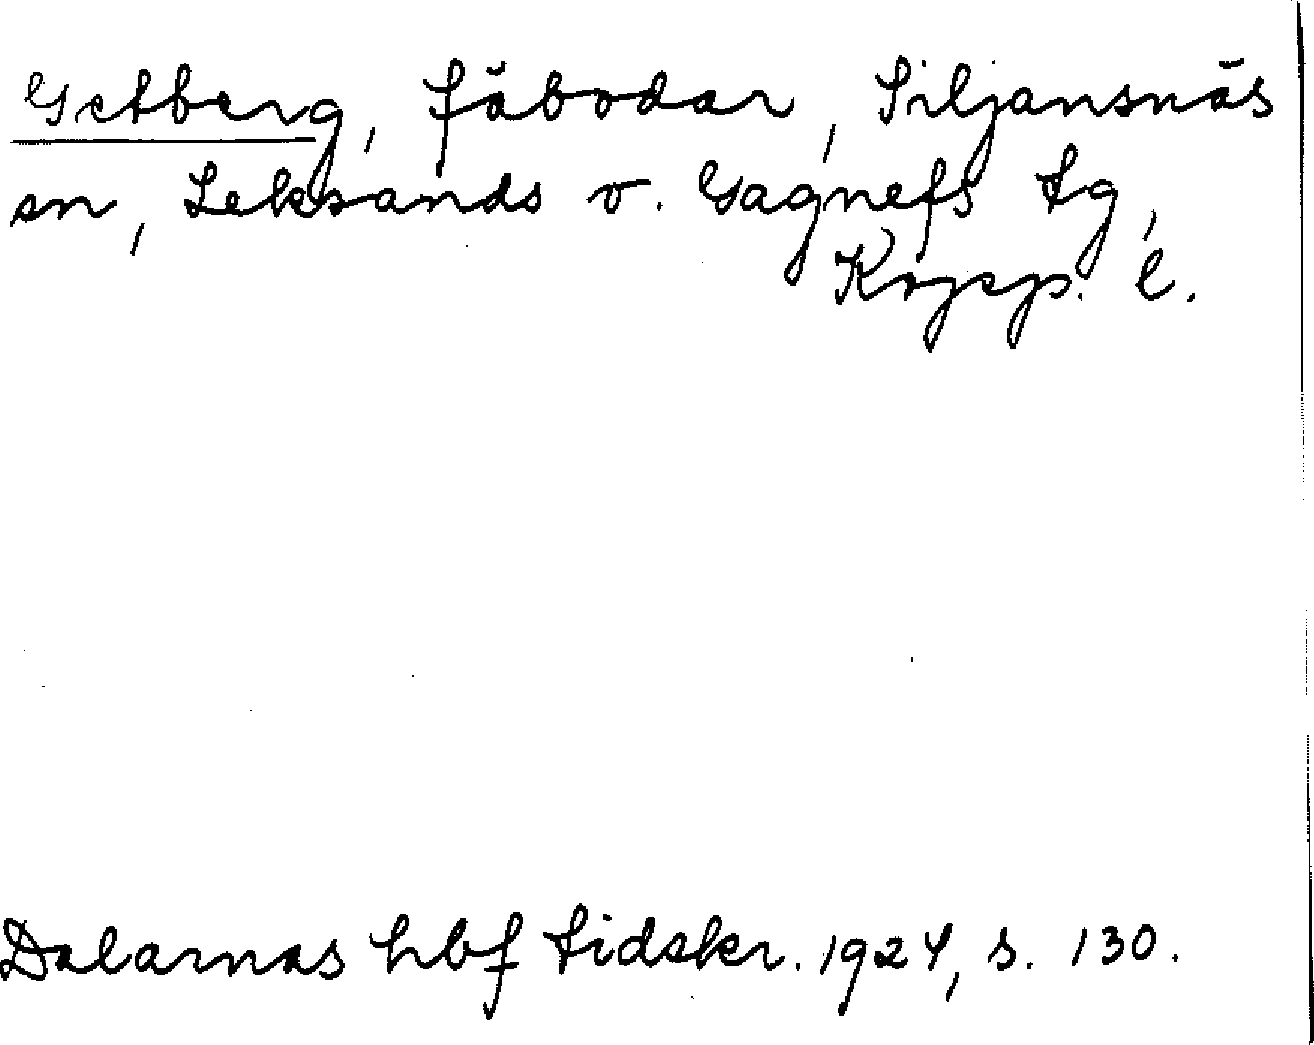 Getberg, fäbodar, Siljansnäs
sn, Leksands o. Gagnefs tg,
Kopp. l.
Dalarnas hbf tidskr. 1924, s. 130.